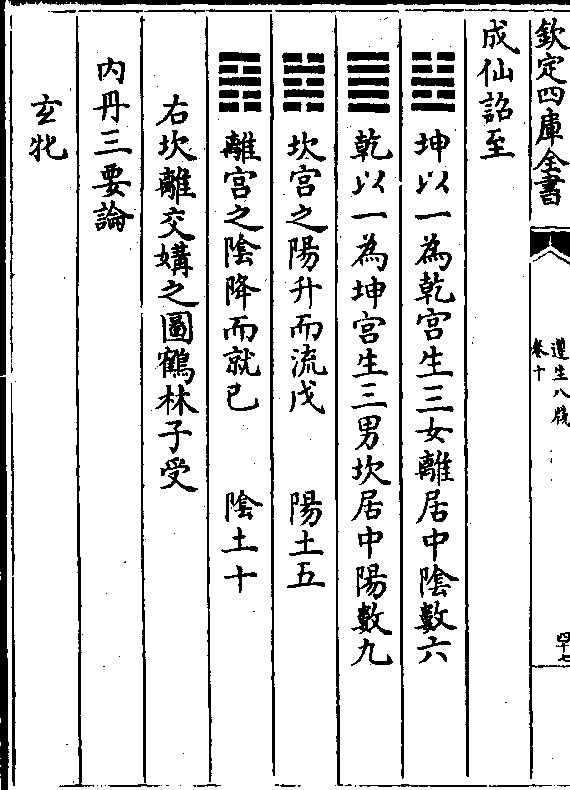 欽定四庫全書
遵生八牋
卷十
四十七
成仙詔至
坤以一為乾宫生三女離居中陰數六
乾以一為坤宫生三男坎居中陽數九
坎宫之陽升而流戊 陽土五
離宫之陰降而就已 陰土十
右坎離交媾之圖鶴林子受
内丹三要論
玄牝